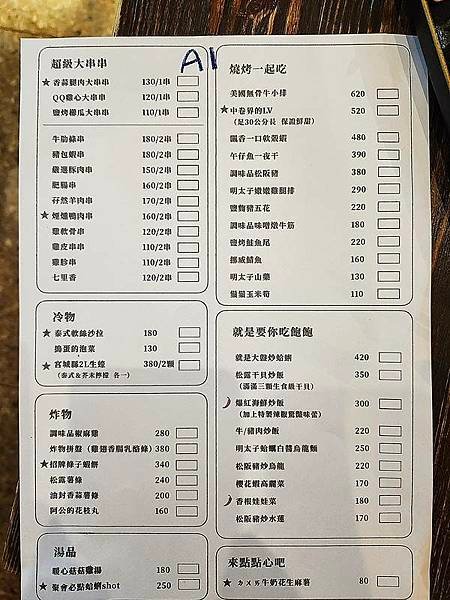 A1
超級大串串
★ 香蒜腿肉大串串 130/1串
QQ雞心大串串 120/1串
鹽烤櫛瓜大串串 110/1串
牛肋條串 180/2串
豬包蝦串 180/2串
嚴選豚肉串 150/2串
肥腸串 160/2串
孜然羊肉串 170/2串
★ 煙燻鴨肉串 160/2串
雞軟骨串 120/2串
雞皮串串 110/2串
雞胗串 110/2串
七里香 120/2串
冷物
★ 泰式軟絲沙拉 180
搗蛋的泡菜 130
★ 宮城縣2L生蠔 380/2顆
(泰式&芥末檸檬 各一)
炸物
調味品椒麻雞 280
炸物拼盤 (雞翅香腸乳酪條) 380
★ 招牌條子蝦餅 340
松露薯條 240
油封香蒜薯條 200
阿公的花枝丸 160
湯品
暖心菇菇雞湯 180
★ 聚會必點蛤蜊shot 250
燒烤一起吃
美國無骨牛小排 620
★ 中卷界的LV 520
(足30公分長 保證鮮甜)
飄香一口軟殼蝦 480
午仔魚一夜干 390
調味品松阪豬 380
明太子嫩嫩雞腿排 290
鹽麴豬五花 220
調味品味噌燉牛筋 180
鹽烤鮭魚尾 220
挪威鯖魚 160
明太子山藥 130
貓貓玉米筍 110
就是要你吃飽飽
就是大盤炒蛤蜊 420
松露干貝炒飯 350
(滿滿三顆生食級干貝)
爆紅海鮮炒飯 300
(加上特製辣椒驚豔味蕾)
牛/豬肉炒飯 220
明太子蛤蠣白醬烏龍麵 250
松阪豬炒烏龍 220
櫻花蝦高麗菜 170
香根娃娃菜 180
松阪豬炒水蓮 170
來點點心吧
★ ㄉㄨㄞ牛奶花生麻薯 80